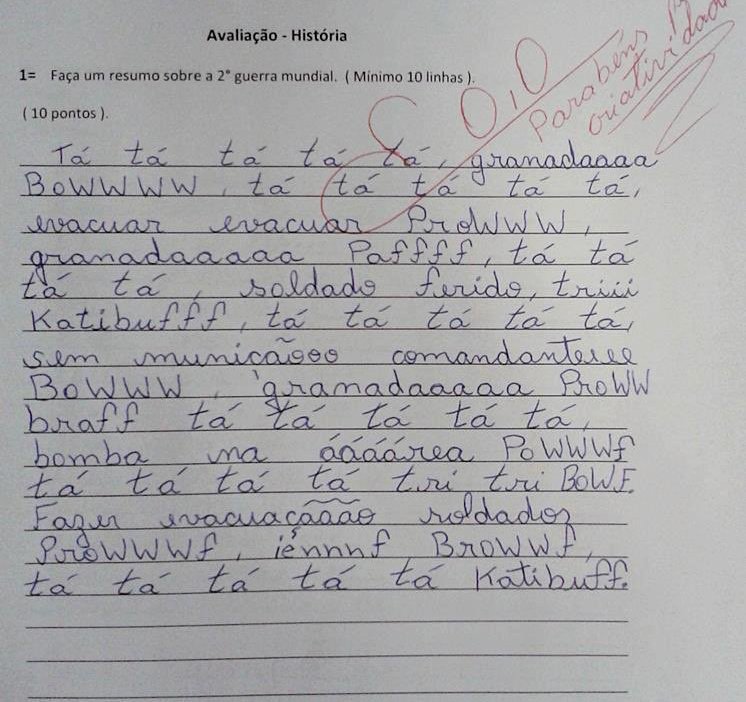 Avaliação - História
1= Faça um resumo sobre a 2° guerra mundial. ( Mínimo 10 linhas ).
( 10 pontos ).
0,0
Parabéns
criatividade
Tá tá tá tá tá, granadaaaa
BOWWWW, tá tá tá tá tá,
evacuar evacuar ProWWW,
granadaaaaa Paffff, tá tá
tá tá, soldado ferido, triiii
Katibufff, tá tá tá tá tá,
sem municãooo comandanteeee
BOWWW, granadaaaaa ProWW
braff tá tá tá tá tá,
bomba na áááárea POWWWf
tá tá tá tá tri tri BOWF.
Fazer evacuacãããão soldados
ProWWWf, iénnnf, BroWWf,
tá tá tá tá tá Katibuff.